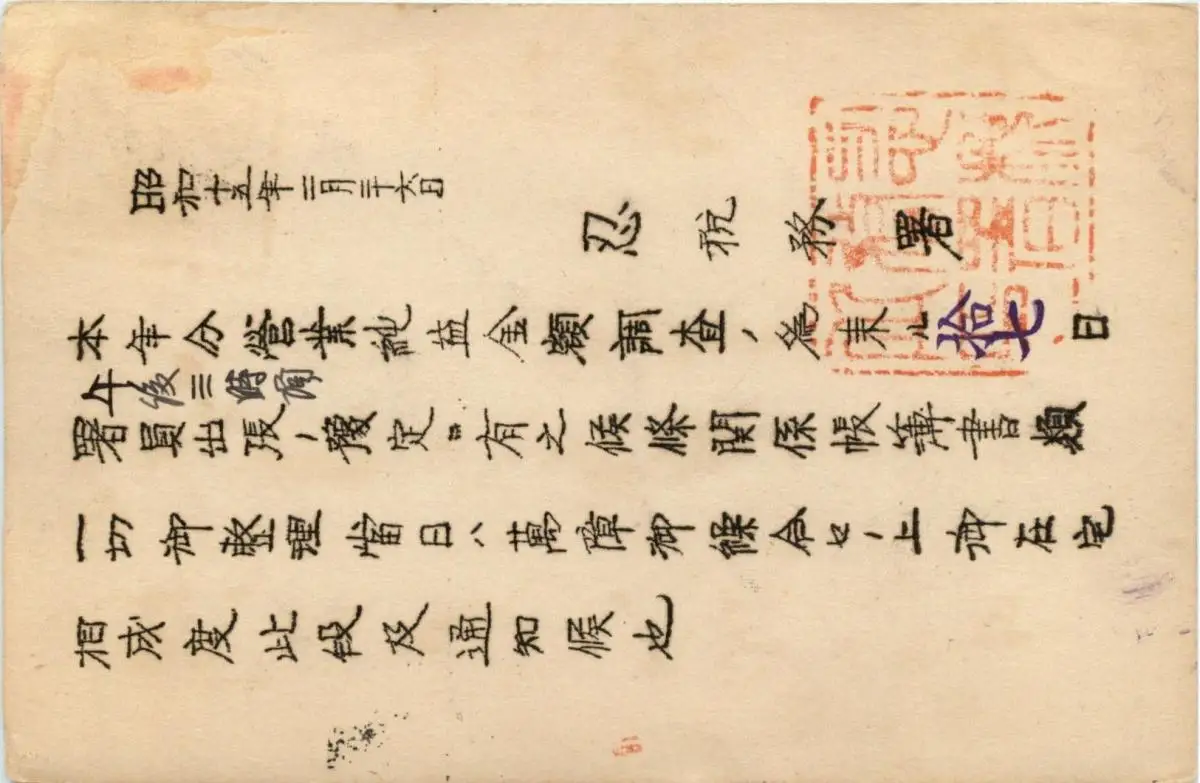 昭和十五年二月二十六日
忍税務署
本年分營業純益金額調査ノ為来ル拾七日
午後三時頃
署員出張ノ豫定ニ有之候條関係帳簿書類
一切御整理當日ハ萬障御繰合セノ上御在宅
相成度此段及通知候也